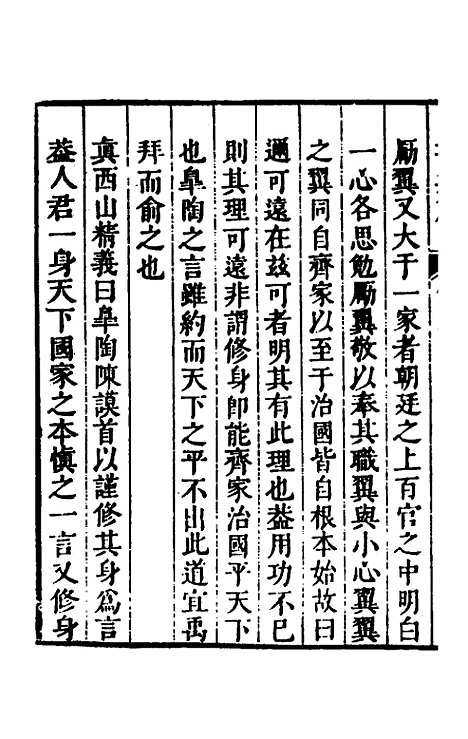 勵翼又大于一家者朝廷之上百官之中明白
一心各思勉勵翼敬以奉其職翼與小心翼翼
之翼同自齊家以至于治國皆自根本始故曰
邇可遠在玆可者明其有此理也葢用功不已
則其理可遠非謂修身卽能齊家治國平天下
也臯陶之言雖約而天下之平不出此道宜禹
拜而俞之也
眞西山精義曰臯陶陳謨首以謹修其身爲言
葢人君一身天下國家之本愼之一言又修身